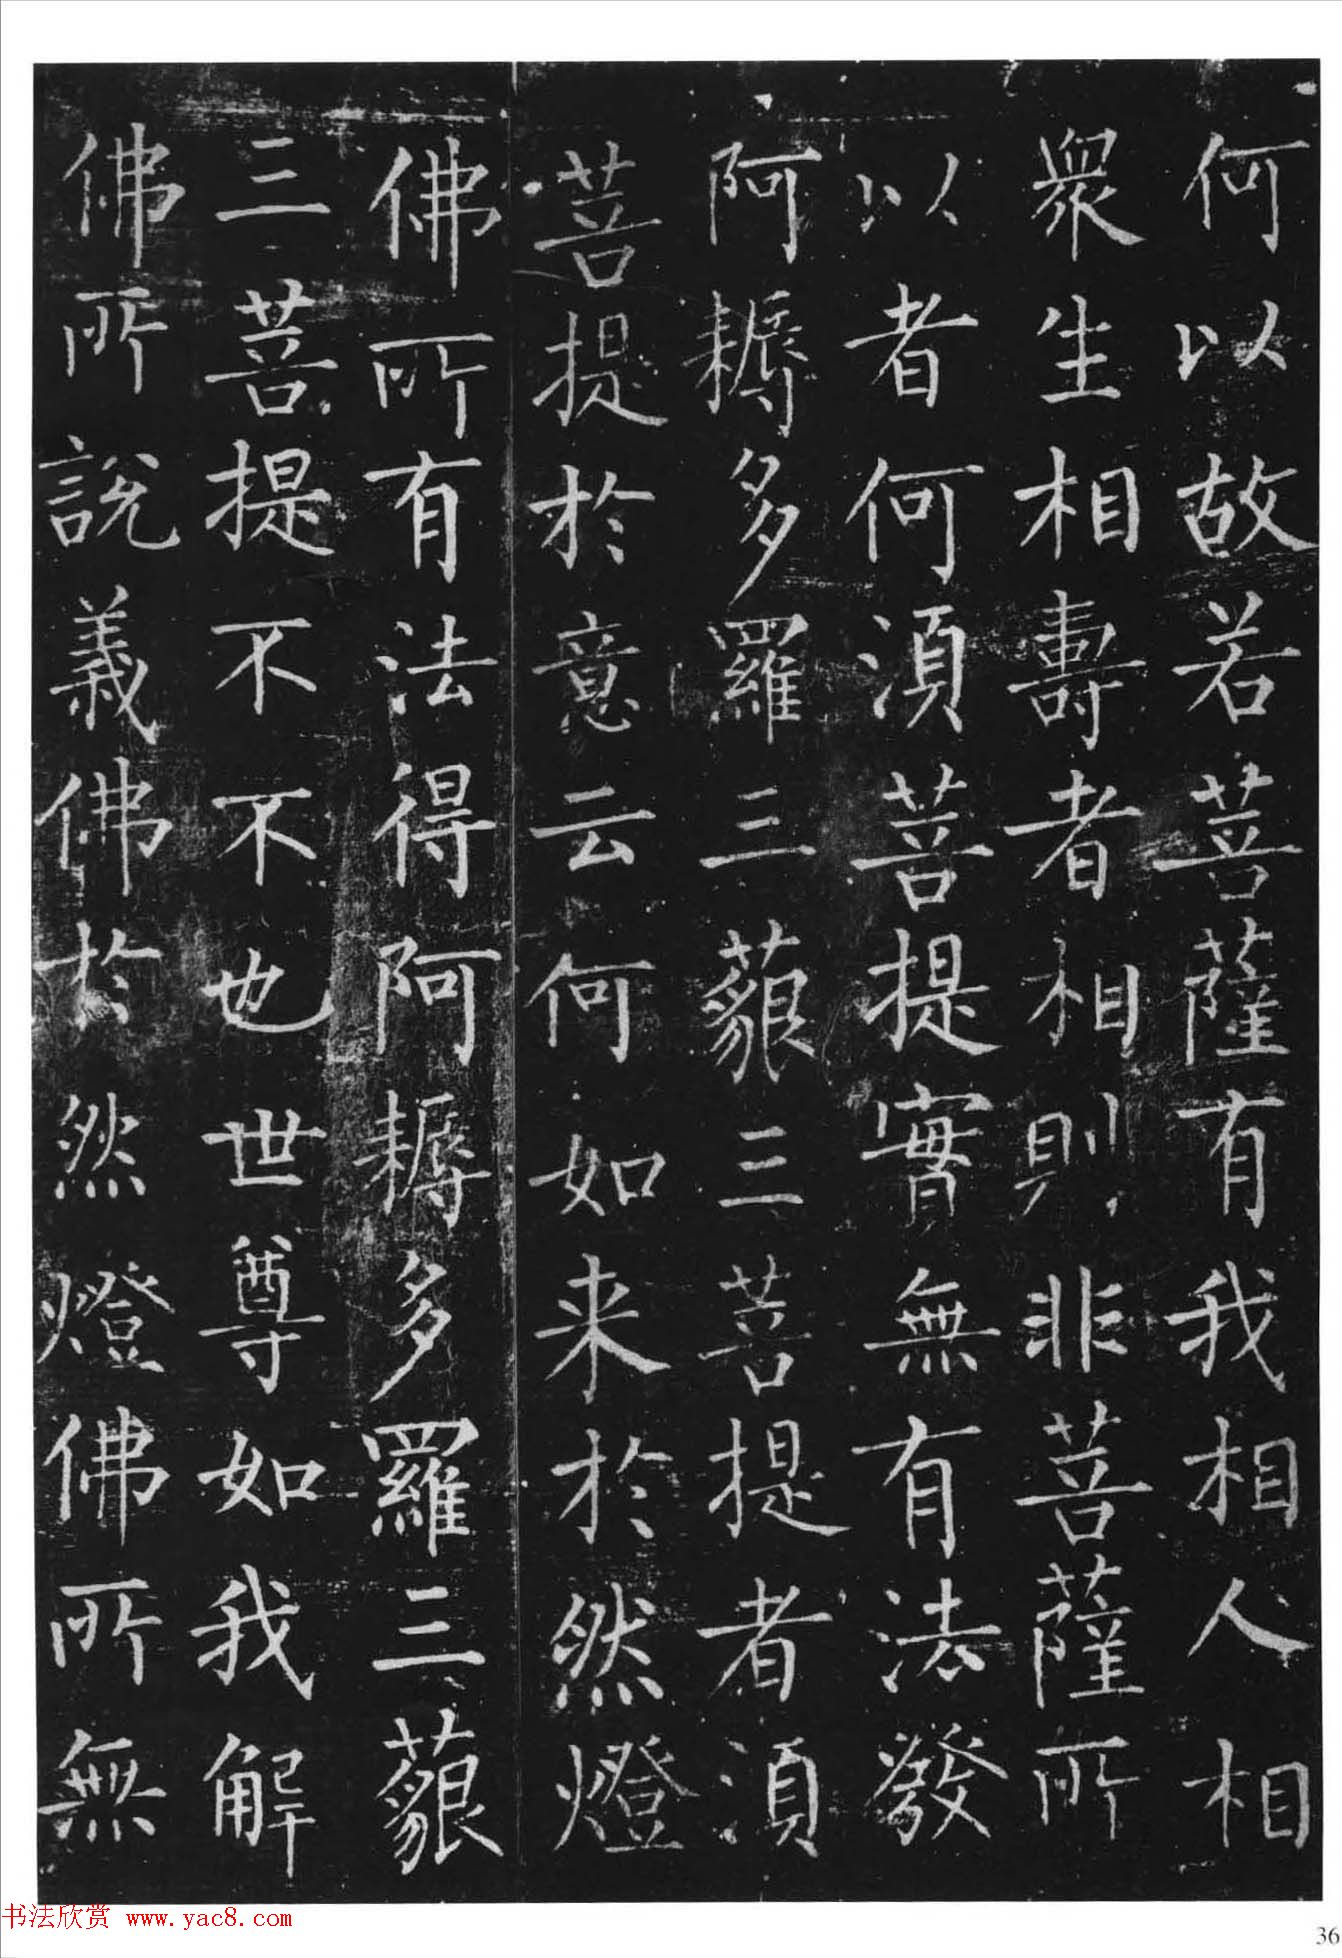 何以故若菩薩有我相人相
衆生相壽者相則非菩薩所
以者何湏菩提實無有法發
阿耨多羅三藐三菩提者湏
菩提於意云何如来於然燈
佛所有法得阿耨多羅三藐
三菩提不不也世尊如我解
佛所說義佛於然燈佛所無
书法欣赏 www.yac8.com
36